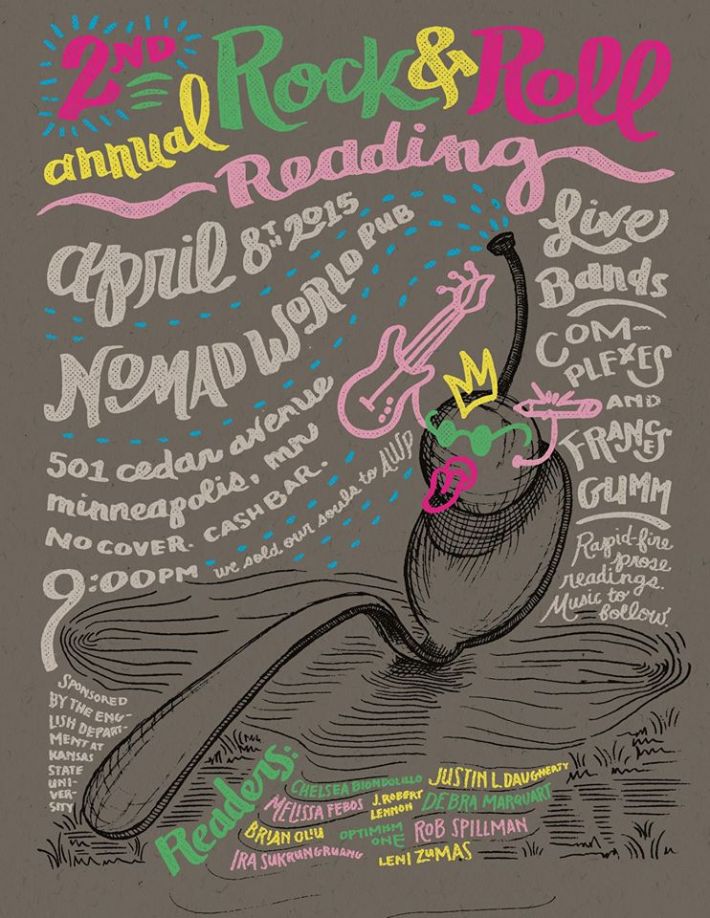 2ND
annual
Rock & Roll
Reading
april 8TH 2015
NOMAD WORLD PUB
501 cedar avenue
minneapolis, mn
NO COVER. CASH BAR.
9:00PM
we sold our souls to AWP
Live
Bands
COM-
PLEXES
AND
FRANCES
GUMM
Rapid-fire
prose
readings.
Music to
follow.
SPONSORED
BY THE ENG-
LISH DEPART-
MENT AT
KANSAS
STATE
UNI-
VER-
SITY
Readers:
CHELSEA BIONDOLILLO
JUSTIN L. DAUGHERTY
MELISSA FEBOS
J. ROBERT
LENNON
DEBRA MARQUART
BRIAN OLIU
OPTIMISM
ONE
ROB SPILLMAN
IRA SUKRUNGRUANG
LENI ZUMAS